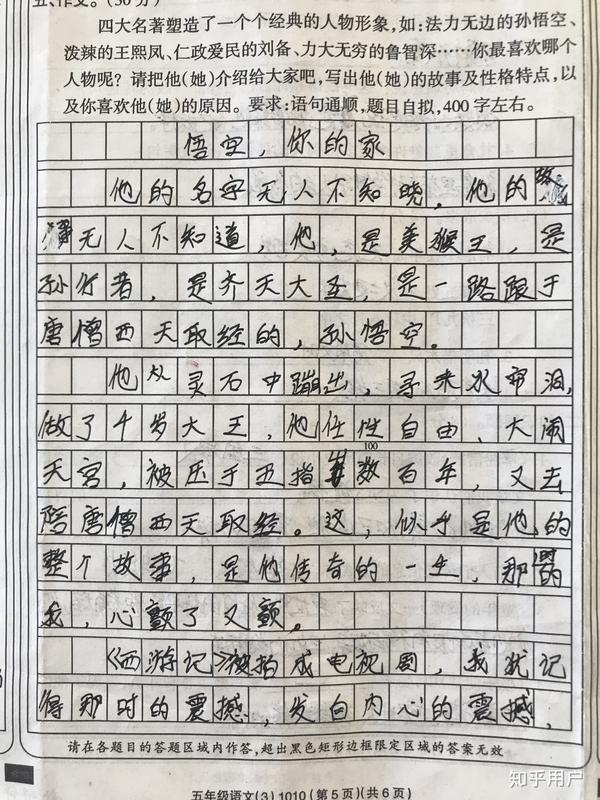 五、作文。(30分)
四大名著塑造了一个个经典的人物形象,如:法力无边的孙悟空、
泼辣的王熙凤、仁政爱民的刘备、力大无穷的鲁智深……你最喜欢哪个
人物呢?请把他(她)介绍给大家吧,写出他(她)的故事及性格特点,以
及你喜欢他(她)的原因。要求:语句通顺,题目自拟,400字左右。
悟空,你的家
他的名字无人不知晓。他的故
无人不知道,他,是美猴王,是
孙行者,是齐天大圣,是一路跟于
唐僧西天取经的,孙悟空。
他从灵石中蹦出,寻来水帘洞,
做了千岁大王,他任性自由、大闹
天宫,被压于五指数百年,又去
100
陪唐僧西天取经。这,似乎是他的
整个故事,是他传奇的一生,那时的
我,心颤了又颤。
《西游记》被拍成电视剧,我犹记
得那时的震撼,发自内心的震撼,
请在各题目的答题区域内作答,超出黑色矩形边框限定区域的答案无效
五年级语文(3) 1010 (第5页)(共6页)
知乎用户